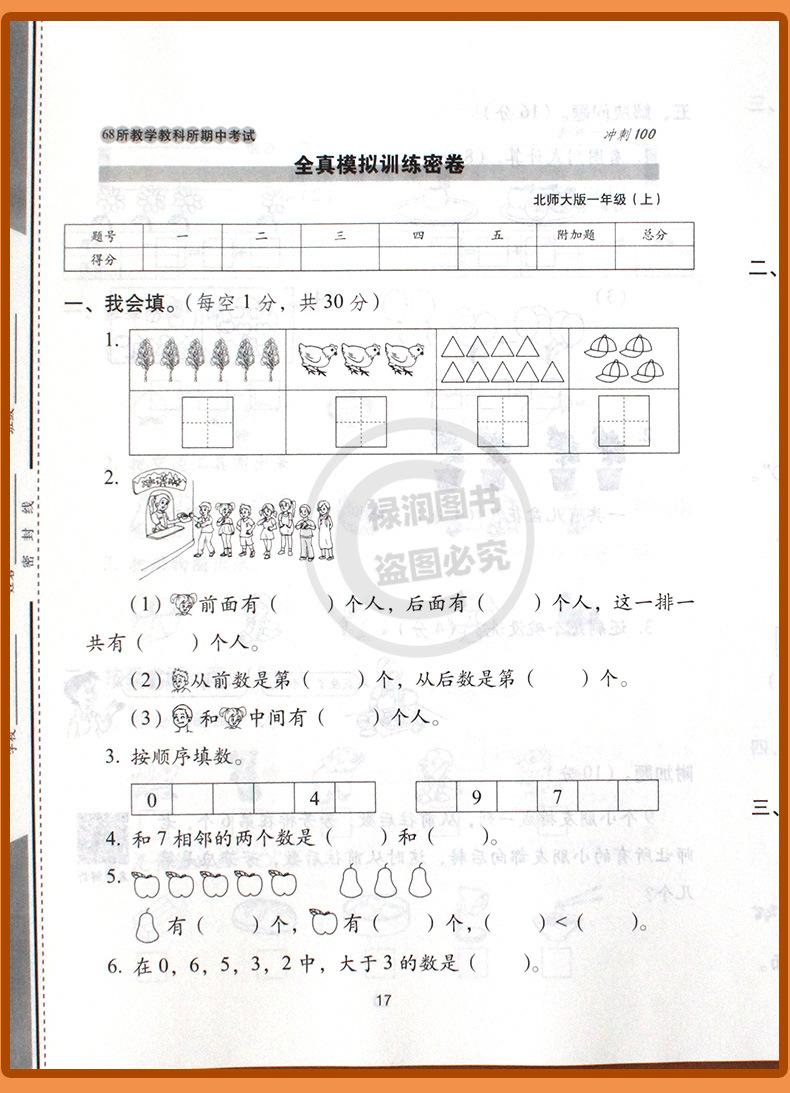 68所教学教科所期中考试
冲刺100
全真模拟训练密卷
北师大版一年级（上）
题号 一 二 三 四 五 附加题 总分
得分
一、我会填。（每空1分，共30分）
1.
2.
（1） 前面有（ ）个人，后面有（ ）个人，这一排一
共有（ ）个人。
（2） 从前数是第（ ）个，从后数是第（ ）个。
（3） 和 中间有（ ）个人。
3. 按顺序填数。
0 4 9 7
4. 和7相邻的两个数是（ ）和（ ）。
5.
有（ ）个， 有（ ）个，（ ）<（ ）。
6. 在0，6，5，3，2中，大于3的数是（ ）。
17
密封线
禄润图书
盗图必究
二、
三、